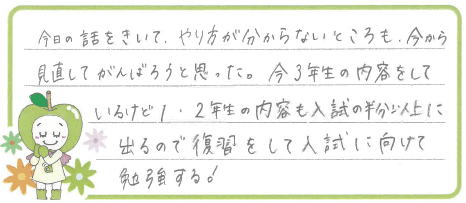 今日の話をきいて、やり方が分からないところも、今から
見直してがんばろうと思った。今3年生の内容をして
いるけど1・2年生の内容も入試の半分以上に
出るので復習をして入試に向けて
勉強する!